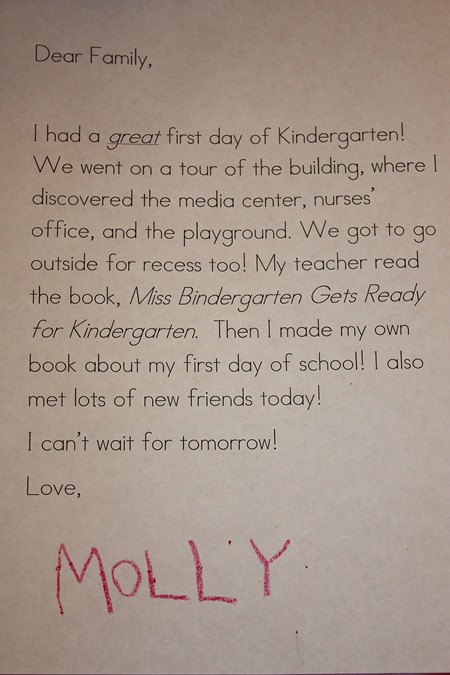 Dear Family,
I had a great first day of Kindergarten!
We went on a tour of the building, where I
discovered the media center, nurses'
office, and the playground. We got to go
outside for recess too! My teacher read
the book, Miss Bindergarten Gets Ready
for Kindergarten. Then I made my own
book about my first day of school! I also
met lots of new friends today!
I can't wait for tomorrow!
Love,
MOLLY